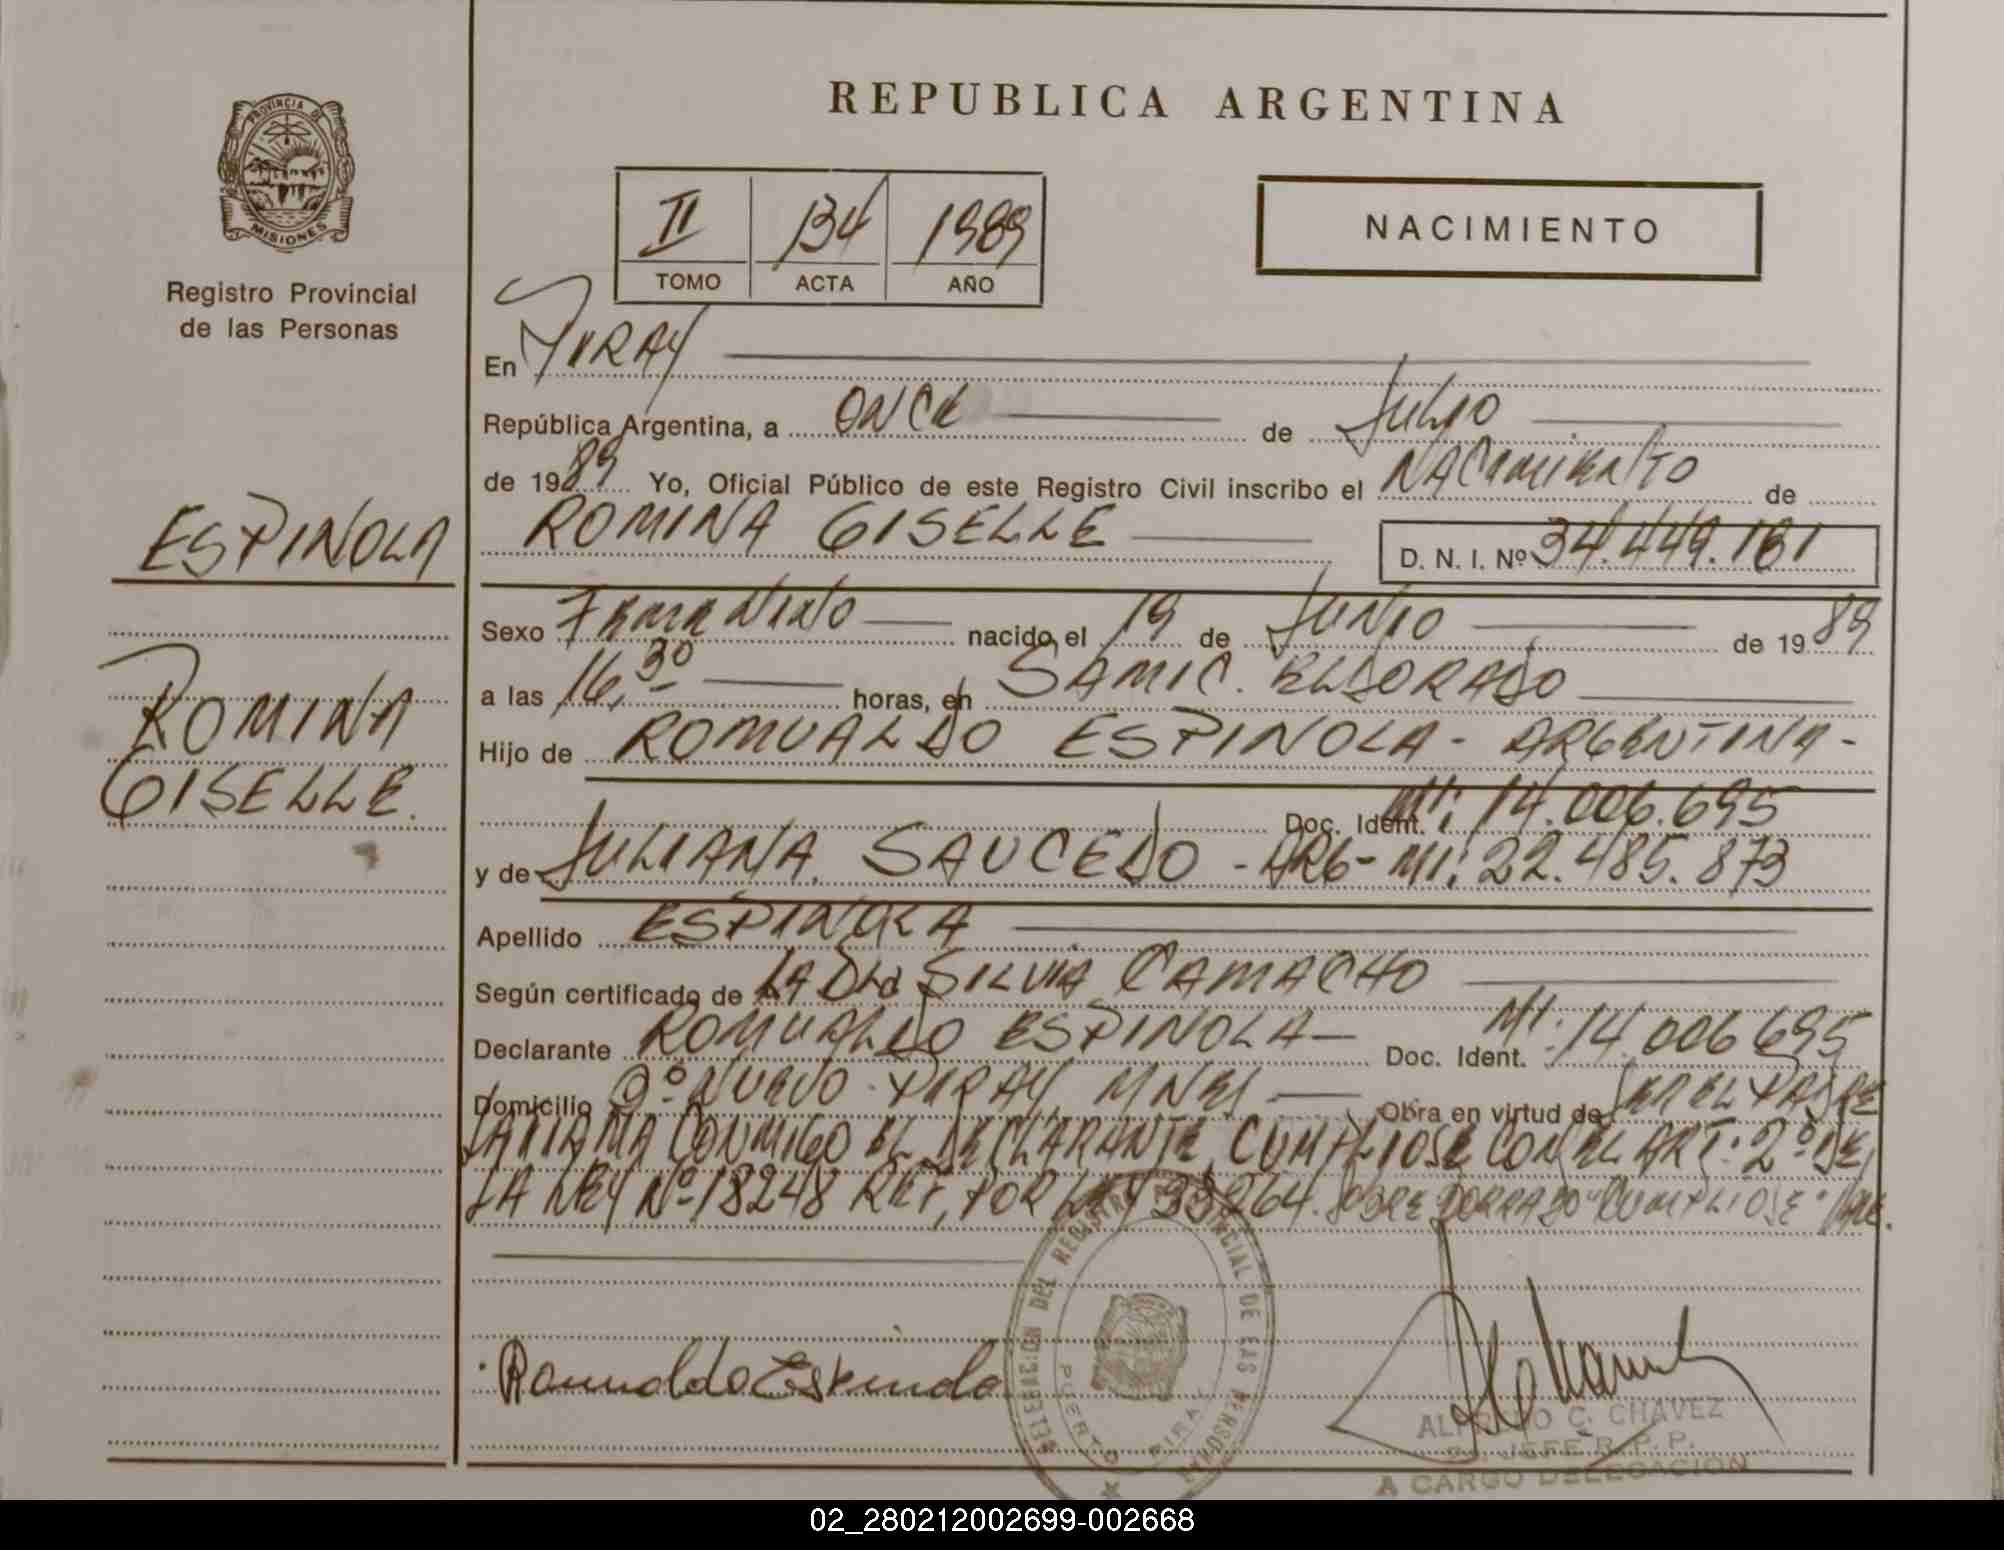 REPUBLICA ARGENTINA
PROVINCIA DE
MISIONES
Registro Provincial
de las Personas
II 134 1989
TOMO ACTA AÑO
NACIMIENTO
En PIRAY
República Argentina, a ONCE de JULIO
de 1989 Yo, Oficial Público de este Registro Civil inscribo el NACIMIENTO de
ESPINOLA
ROMINA GISELLE D. N. I. Nº 34.449.161
Sexo FEMENINO nacido el 19 de JUNIO de 1989
ROMINA
GISELLE.
a las 16,30 horas, en SAMIC. ELDORADO
Hijo de ROMUALDO ESPINOLA - ARGENTINA -
Doc. Ident. MI: 14.006.695
y de JULIANA SAUCEDO - ARG - MI: 22.485.873
Apellido ESPINOLA
Según certificado de LA SILVIA CAMACHO
Declarante ROMUALDO ESPINOLA - Doc. Ident. MI: 14.006 695
Domicilio Bº NUEVO - PIRAY MNES Obra en virtud de SER EL PADRE
CONMIGO EL DECLARANTE, CUMPLIOSE CON EL ART: 2º DE
LA LEY Nº 18248 POR LEY SOBRE BORRADO "CUMPLIOSE" VALE.
Romualdo Espindola
DELEGACION DEL REGISTRO PROVINCIAL DE LAS PERSONAS
PUERTO PIRAY
ALFREDO C. CHAVEZ
JEFE R. P. P.
A CARGO DELEGACION
02_280212002699-002668